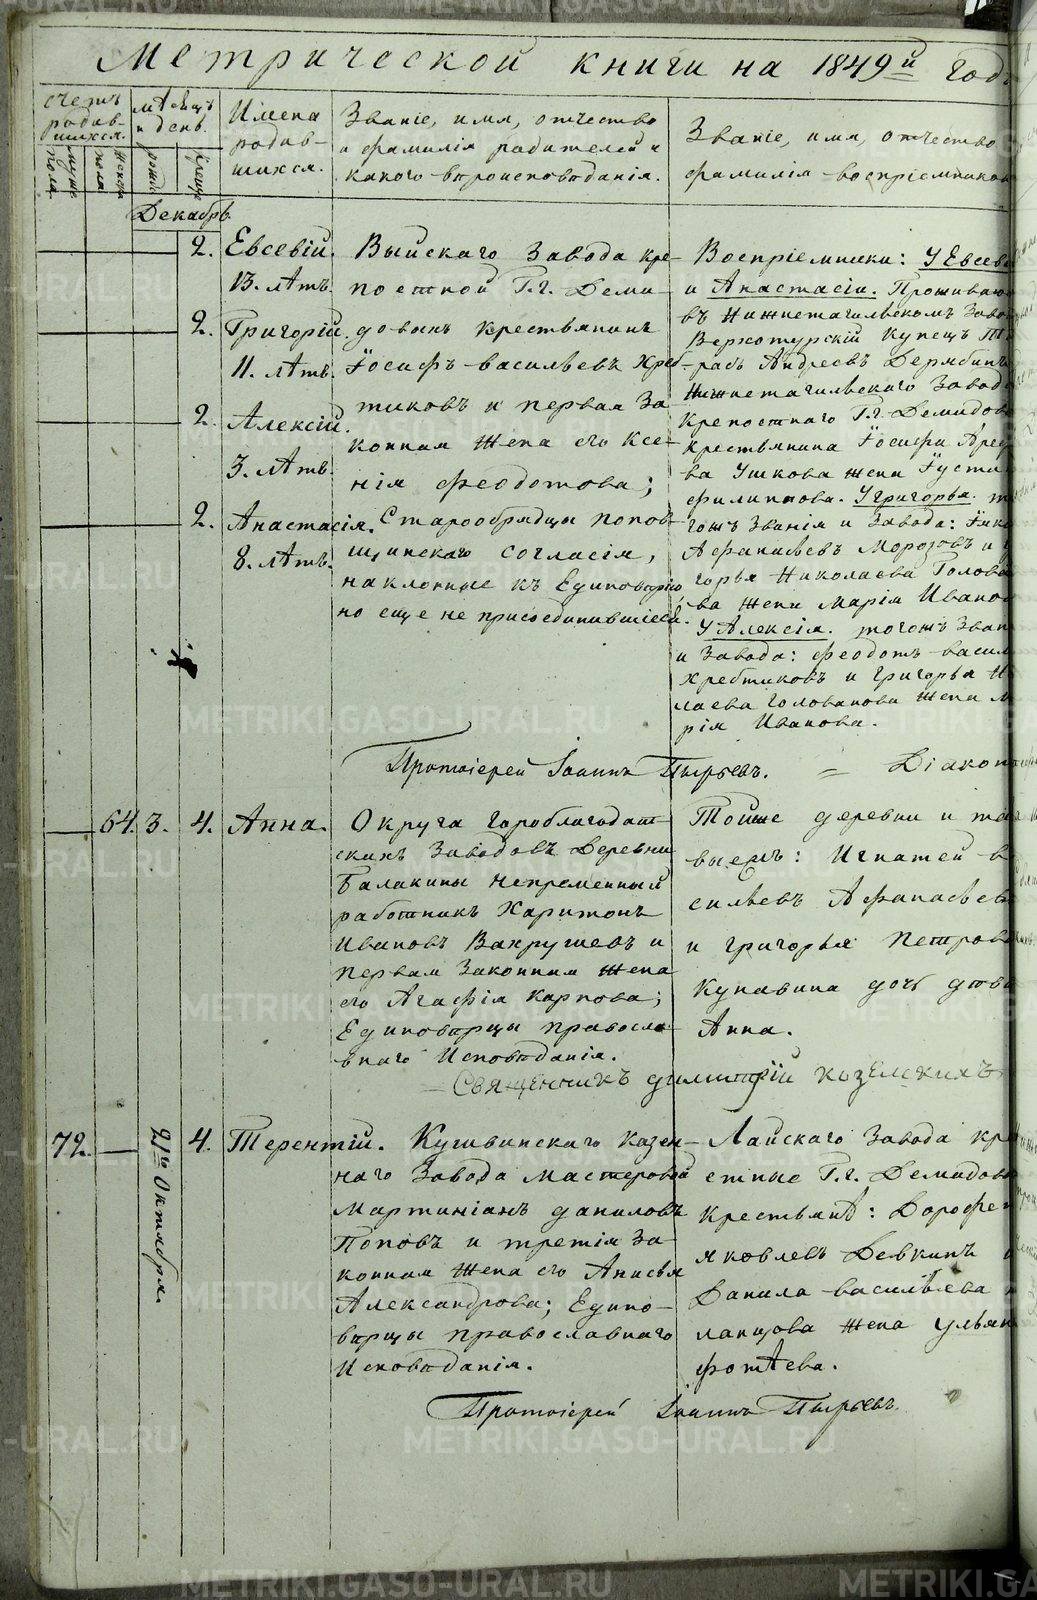 Метрической книги на 1849й год
счетъ родив-шихся.
муже пола
женска пола
мѣсяцъ и день.
рожд.
крещ.
Имена родив-
шихся.
Званіе, имя, отчество
и фамилія родителей и
какого вѣроисповѣданія.
Званіе, имя, отчество
фамилія воспріемников
Декабрь
2. Евсевій.
13. лѣтъ.
2. Григорій.
11. лѣтъ.
2. Алексій.
3. лѣтъ.
2. Анастасія.
8. лѣтъ.
Выйскаго Завода кре-
постной Г.г. Деми-
довыхъ крестьянинъ
Іосифъ Васильевъ Хреб-
тиковъ и первая за
конная жена его Ксе-
нія Феодотова;
Старообрядцы попов-
щинскаго согласія,
наклонные къ Единовѣрію,
но еще не присоединившіеся.
Воспріемники: У Евсев
и Анастасіи. Проживаю
въ Нижнетагильскомъ Заво
Верхотурскій Купецъ
Андреевъ Дерябинъ
Нижнетагильскаго Завода
крепостнаго Г.г. Демидов
крестьянина Іосифа
ва Ушкова жена Іусти
Филиппова. У Григорья. т
гожъ Званія и Завода:
Афанасьевъ Морозовъ и
горья Николаева Голова
ва жена Марія Ивано
У Алексія. тогожъ Зван
и Завода: Феодотъ Васил
Хребтиковъ и Григорья Н
лаева Голованова жена М
рія Иванова.
Протоіерей Іоаннъ Пырьевъ. = Діакон
64. 3. 4. Анна.
Округа Гороблагодат
скихъ Заводовъ Деревни
Балакины непременный
работникъ Харитонъ
Ивановъ Вахрушевъ и
первая законная жена
его Агафія Карпова;
Единовѣрцы правосла
внаго Исповѣданія.
Тойже деревни и
выемъ: Игнатей в
сильевъ Афанасьев
и Григорья Петров
Купавина дочь
Анна.
= Священникъ Димитрій Козельскихъ
72. 21го Октября. 4. Терентій.
Кушвинскаго Казен-
наго Завода мастеровой
Мартиніанъ Даниловъ
Поповъ и третія за-
конная жена его Анисья
Александрова; Едино-
вѣрцы православнаго
Исповѣданія.
Лайскаго Завода кр
стные Г.г. Демидов
крестьянѣ: Дорофе
Яковлевъ Девкинъ
Данила Васильева
ланцова жена Ульян
Фотѣева.
Протоіерей Іоаннъ Пырьевъ.
METRIKI.GASO-URAL.RU